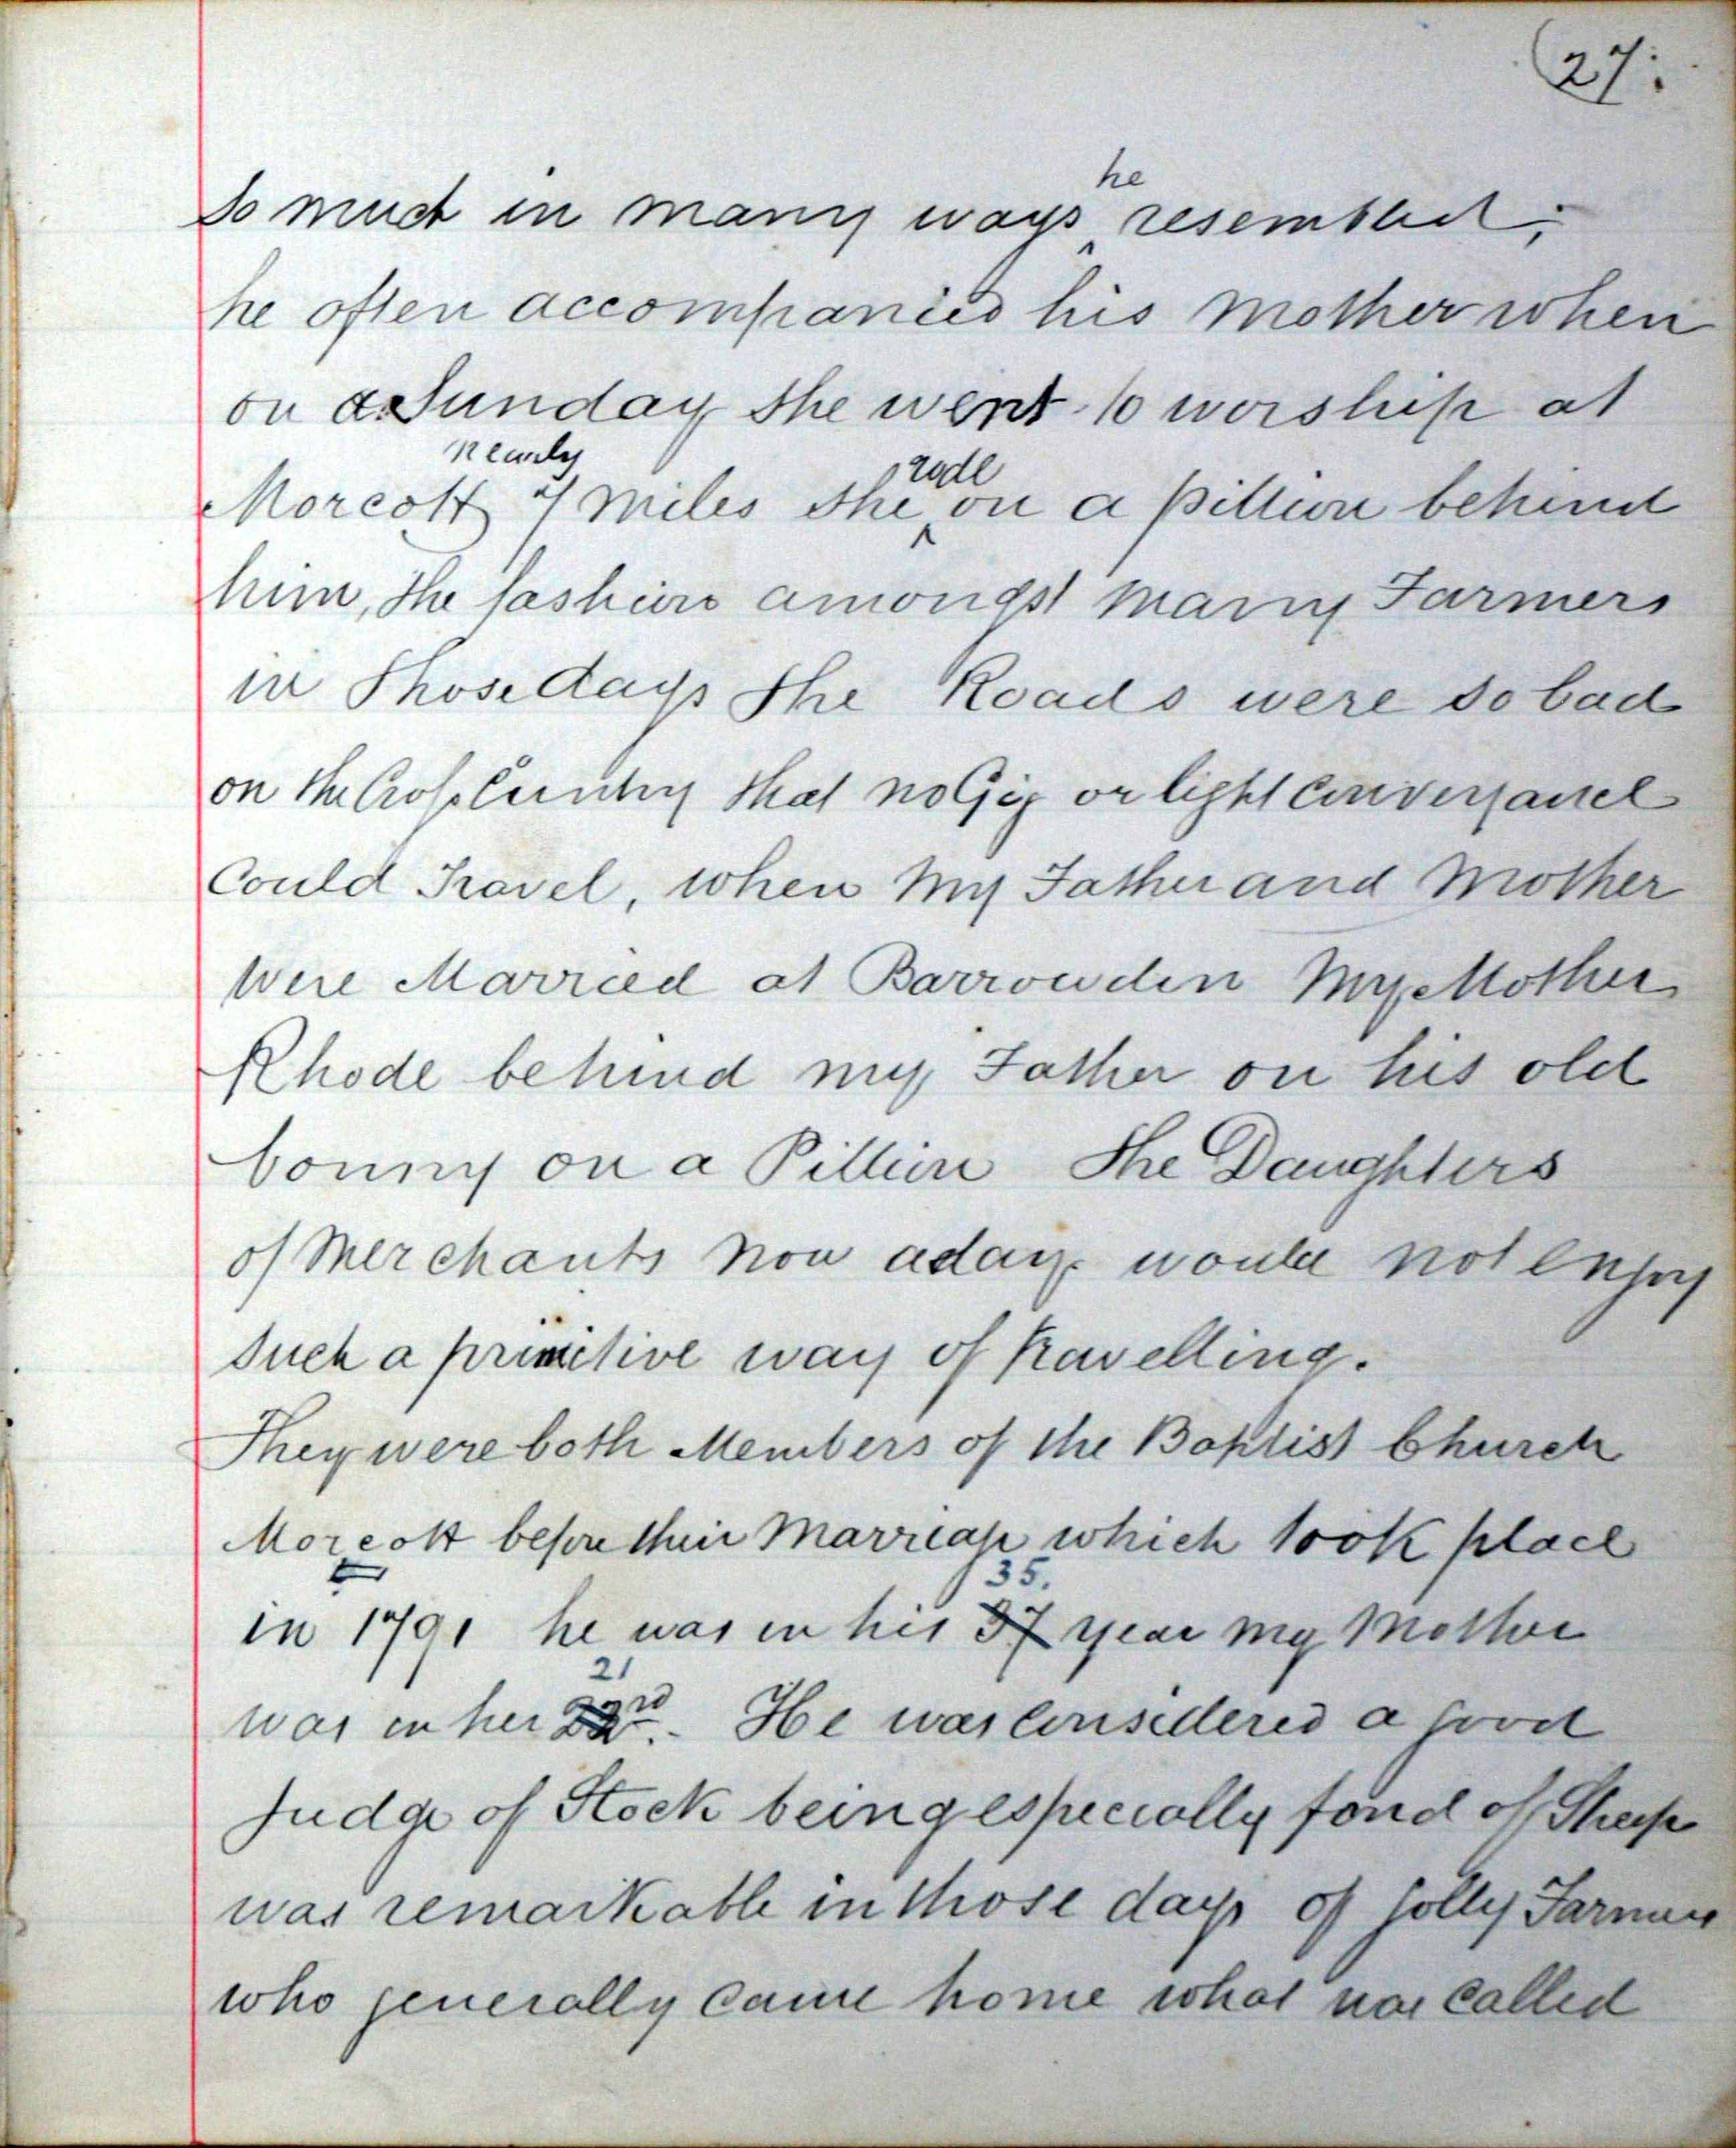 (27.
he
So much in many ways resembled;
he often accompanied his Mother when
on a Sunday she went to worship at
nearly
rode
Morcott 7 miles she on a pillion behind
him, the fashion amongst many Farmers
in Those days The Roads were so bad
on the Cross Country that no Gig or light Conveyance
Could Travel, when My Father and Mother
Were Married at Barrowden My Mother
Rhode behind my Father on his old
bonny on a Pillion The Daughters
of Merchants Now aday would not enjoy
such a primitive way of travelling.
They were both Members of the Baptist Church
Morcott before their Marriage which took place
35.
in 1791 he was in his 37 year my Mother
21
was in her 23rd. He was Considered a good
Judge of Stock being especially fond of Sheep
was remarkable in those days of jolly Farmers
who generally came home what was called